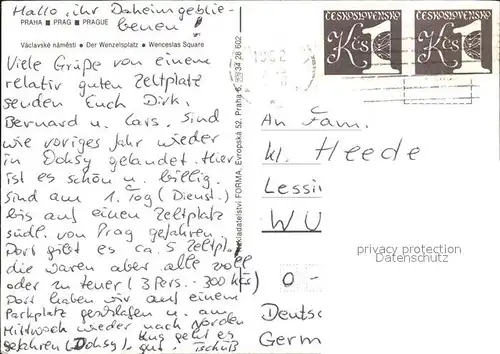 Hallo, ihr Daheimgeblie-
benen!
PRAHA ■ PRAG ■ PRAGUE
Václavské náměstí • Der Wenzelsplatz • Wenceslas Square
Viele Grüße von einem
relativ guten Zeltplatz
senden Euch Dirk,
Bernard u. Lars. Sind
wie voriges Jahr wieder
in Doksy gelandet. Hier
ist es schön u. billig.
Sind am 1. Tag (Dienst.)
bis auf einen Zeltplatz
südl. von Prag gefahren.
Dort gibt es ca. 5 Zeltpl.,
die waren aber alle voll
oder zu teuer (3 Pers. - 300 Kčs)
Dort haben wir auf einem
Parkplatz geschlafen u. am
Mittwoch wieder nach Norden
gefahren (Doksy). gut. Tschüß
Nakladatelství FORMA, Evropská 52, Praha 6, 34 28 602
ČESKOSLOVENSKO
Kčs 1
ČESKOSLOVENSKO
Kčs 1
An Fam.
Kl. Heede
Lessin
WU
O-
Deutsc
Germ
privacy protection
Datenschutz